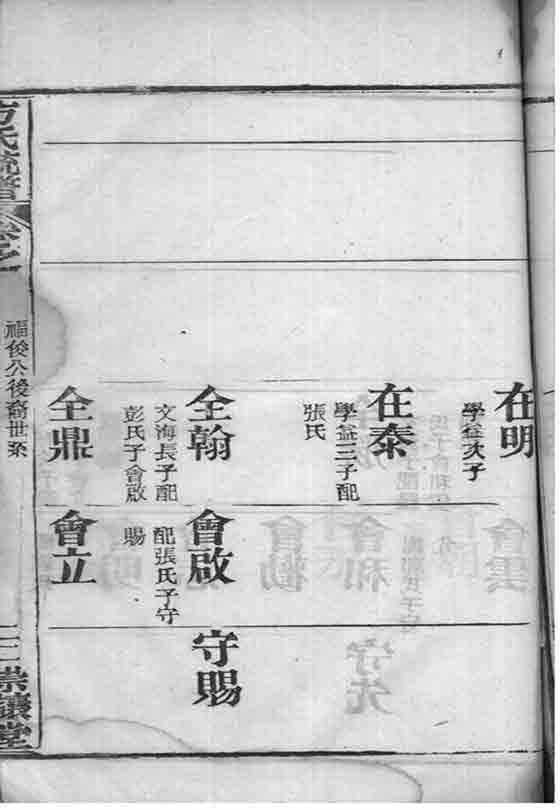 在明
學益次子
在泰
學益三子配
張氏
全翰
文海長子配
彭氏子會啟
全鼎
會啟
配張氏子守
賜
會立
守賜
方氏統譜
卷之
福俊公後裔世系
三
崇讓堂